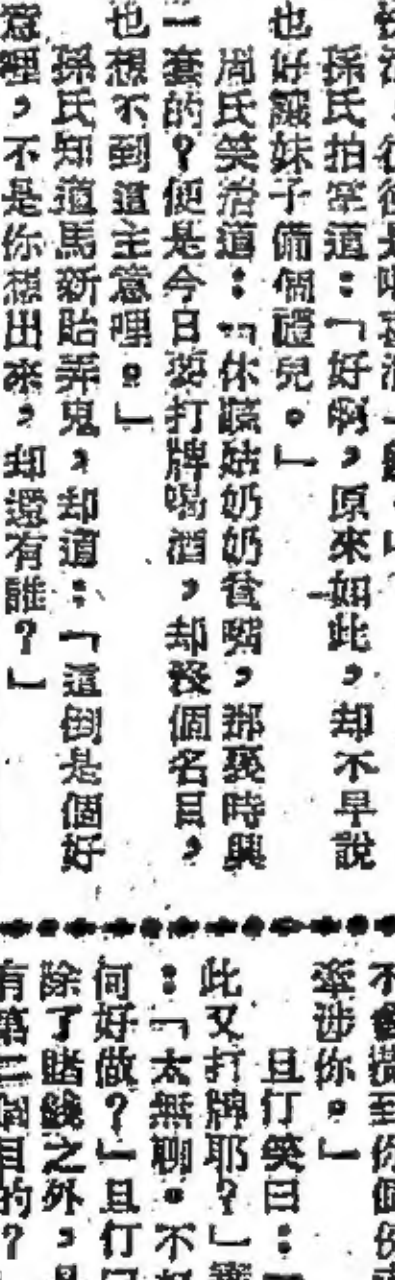 孫氏拍掌道:「好啊,原來如此,却不早說
也好讓妹子備個禮兒。」
周氏笑着道:「休聽姑奶奶貧嘴,那裏時興
一套的?便是今日要打牌喝酒,却沒個名目,
也想不到這主意哩。」
孫氏知道馬新貽弄鬼,却道:「這倒是個好
意哩,不是你想出來,却還有誰?」
牽涉你。」
且仃笑曰:「
此又打牌耶?」
:「太無聊。不
何好做?」且仃
除了賭錢之外,
有第二個目的?